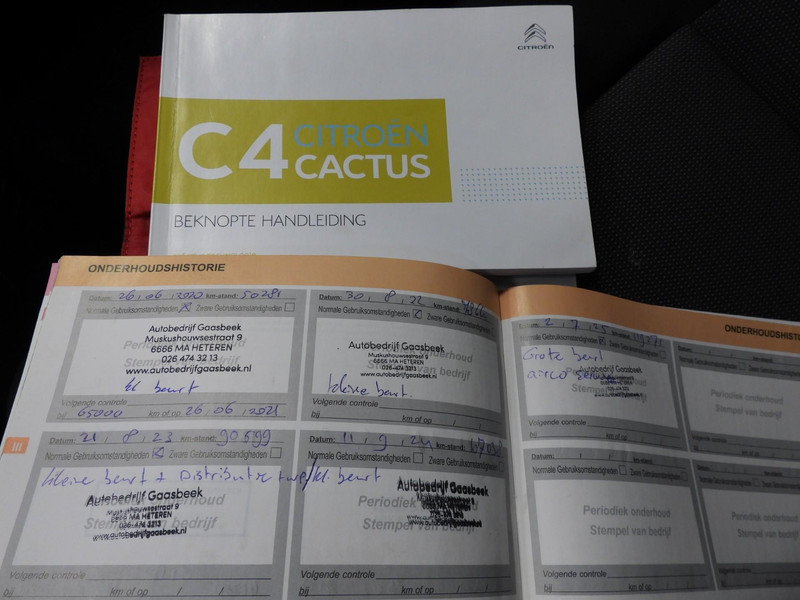 CITROËN
C4 CITROËN
CACTUS
BEKNOPTE HANDLEIDING
ONDERHOUDSHISTORIE
Datum: 26, 06, 2020 km-stand: 50281
Normale Gebruiksomstandigheden Zware Gebruiksomstandigheden
Autobedrijf Gaasbeek
Muskushouwsestraat 9
6666 MA HETEREN
026 474 32 13
www.autobedrijfgaasbeek.nl
kl beurt
Volgende controle
bij 65000 km of op 26, 06, 2021
Datum: 30, 8, 22 km-stand:
Normale Gebruiksomstandigheden Zware Gebruiksomstandigheden
Autobedrijf Gaasbeek
Muskushouwsestraat 9
6666 MA HETEREN
026-474 3213
www.autobedrijfgaasbeek.nl
kleine beurt.
Volgende controle
bij km of op / /
Datum: 21, 8, 23 km-stand: 90599
Normale Gebruiksomstandigheden Zware Gebruiksomstandigheden
kleine beurt + Distributie
Autobedrijf Gaasbeek
Muskushouwsestraat 9
6666 MA HETEREN
026-474 3213
www.autobedrijfgaasbeek.nl
Volgende controle
bij km of op / /
Datum: 11, 9, 24 km-stand:
Normale Gebruiksomstandigheden Zware Gebruiksomstandigheden
kl. beurt
Periodiek onderhoud
Stempel van bedrijf
Autobedrijf Gaasbeek
Volgende controle
bij km of op / /
III
ONDERHOUDSHISTO
Datum: 2, 7, 25 km-stand:
Normale Gebruiksomstandigheden Zware Gebruiksomstandigheden
Grote beurt
airco
Stempel van bedrijf
Volgende controle
bij km of op / /
Periodiek onderhoud
Stempel van bedrijf
Volgende controle
bij km of op
Datum: km-stand:
Normale Gebruiksomstandigheden Zware Gebruiksomstandigheden
Periodiek onderhoud
Stempel van bedrijf
Volgende controle
bij km of op / /
Periodiek onderhoud
Stempel van bedrijf
Volgende controle
bij km of op